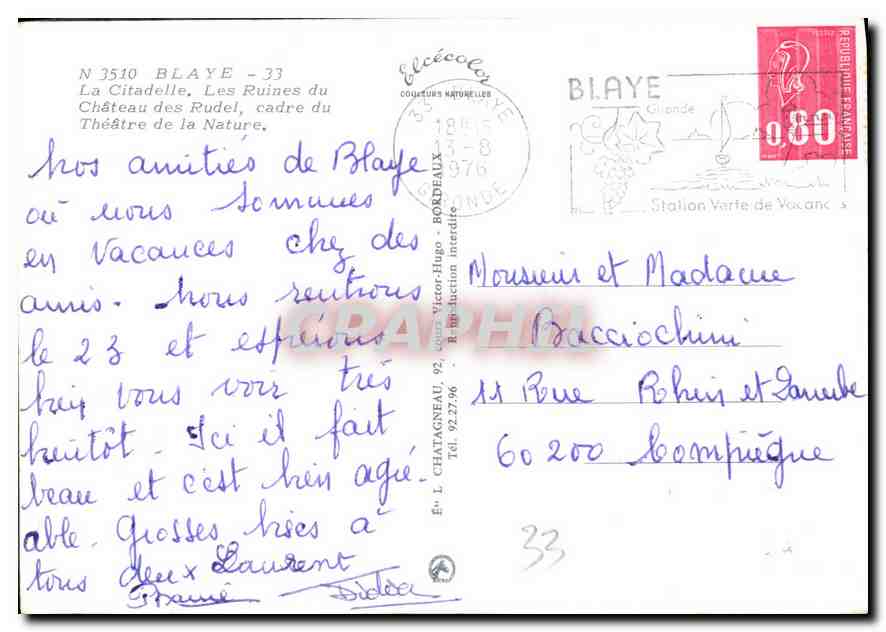 N 3510 BLAYE - 33
La Citadelle. Les Ruines du
Château des Rudel, cadre du
Théâtre de la Nature.
Nos amitiés de Blaye
où nous sommes
en vacances chez des
amis. Nous rentrons
le 23 et espérons
bien vous voir très
bientôt. Ici il fait
beau et c'est bien agré-
able. Grosses bises à
tous deux Laurent
Didier
Elcécolor
COULEURS NATURELLES
Édts L. CHATAGNEAU, 92, cours Victor-Hugo - BORDEAUX
Tél. 92.27.96 - Reproduction interdite
33 BLAYE
18H15
13-8
1976
GIRONDE
BLAYE
Gironde
Station Verte de Vacanc
REPUBLIQUE FRANÇAISE
0,80
Monsieur et Madame
Bacciochini
11 Rue Rhin et Danube
60200 Compiègne
33
CPAPHIL